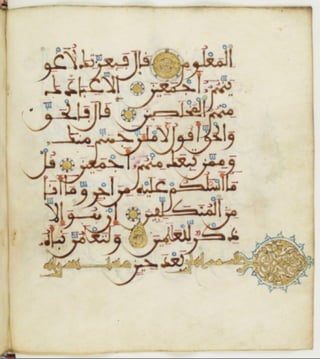 المعلوم قال فبعزتك لأغو
ينهم أجمعين إلا عبادك
منهم المخلصين قال فالحق
والحق أقول لأملأن جهنم منك
وممن تبعك منهم أجمعين قل
ما أسلكم عليه من أجر وما أنا
من المتكلفين إن هو إلا
ذكر للعلمين ولتعلمن نبأه
بعد حين